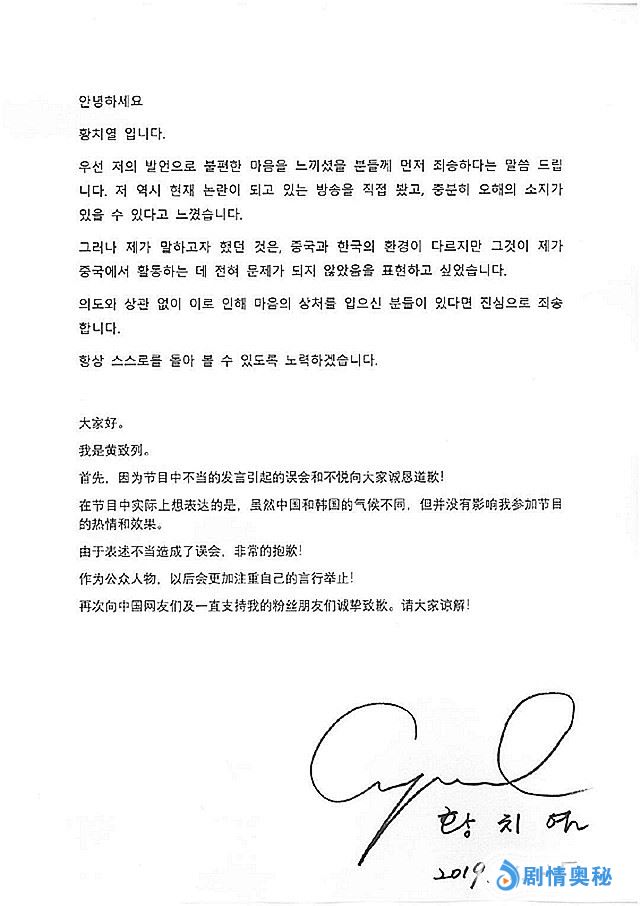 안녕하세요
황치열 입니다.
우선 저의 발언으로 불편한 마음을 느끼셨을 분들께 먼저 죄송하다는 말씀 드립
니다. 저 역시 현재 논란이 되고 있는 방송을 직접 봤고, 충분히 오해의 소지가
있을 수 있다고 느꼈습니다.
그러나 제가 말하고자 했던 것은, 중국과 한국의 환경이 다르지만 그것이 제가
중국에서 활동하는 데 전혀 문제가 되지 않았음을 표현하고 싶었습니다.
의도와 상관 없이 이로 인해 마음의 상처를 입으신 분들이 있다면 진심으로 죄송
합니다.
항상 스스로를 돌아 볼 수 있도록 노력하겠습니다.
大家好。
我是黄致列。
首先，因为节目中不当的发言引起的误会和不悦向大家诚恳道歉！
在节目中实际上想表达的是，虽然中国和韩国的气侯不同，但并没有影响我参加节目
的热情和效果。
由于表述不当造成了误会，非常的抱歉！
作为公众人物，以后会更加注重自己的言行举止！
再次向中国网友们及一直支持我的粉丝朋友们诚挚致歉。请大家谅解！
황치열
2019.
剧情奥秘